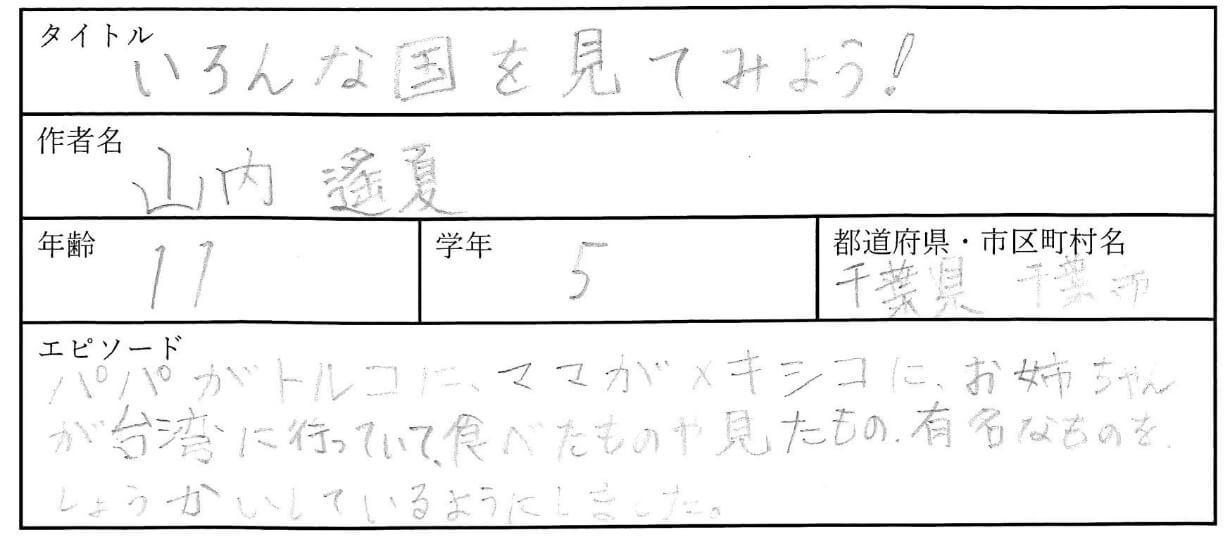 タイトル
いろんな国を見てみよう!
作者名
山内 遙夏
年齢
11
学年
5
都道府県・市区町村名
千葉県 千葉市
エピソード
パパがトルコに、ママがメキシコに、お姉ちゃん
が台湾に行っていて、食べたものや見たもの、有名なものを、
しょうかいしているようにしました。